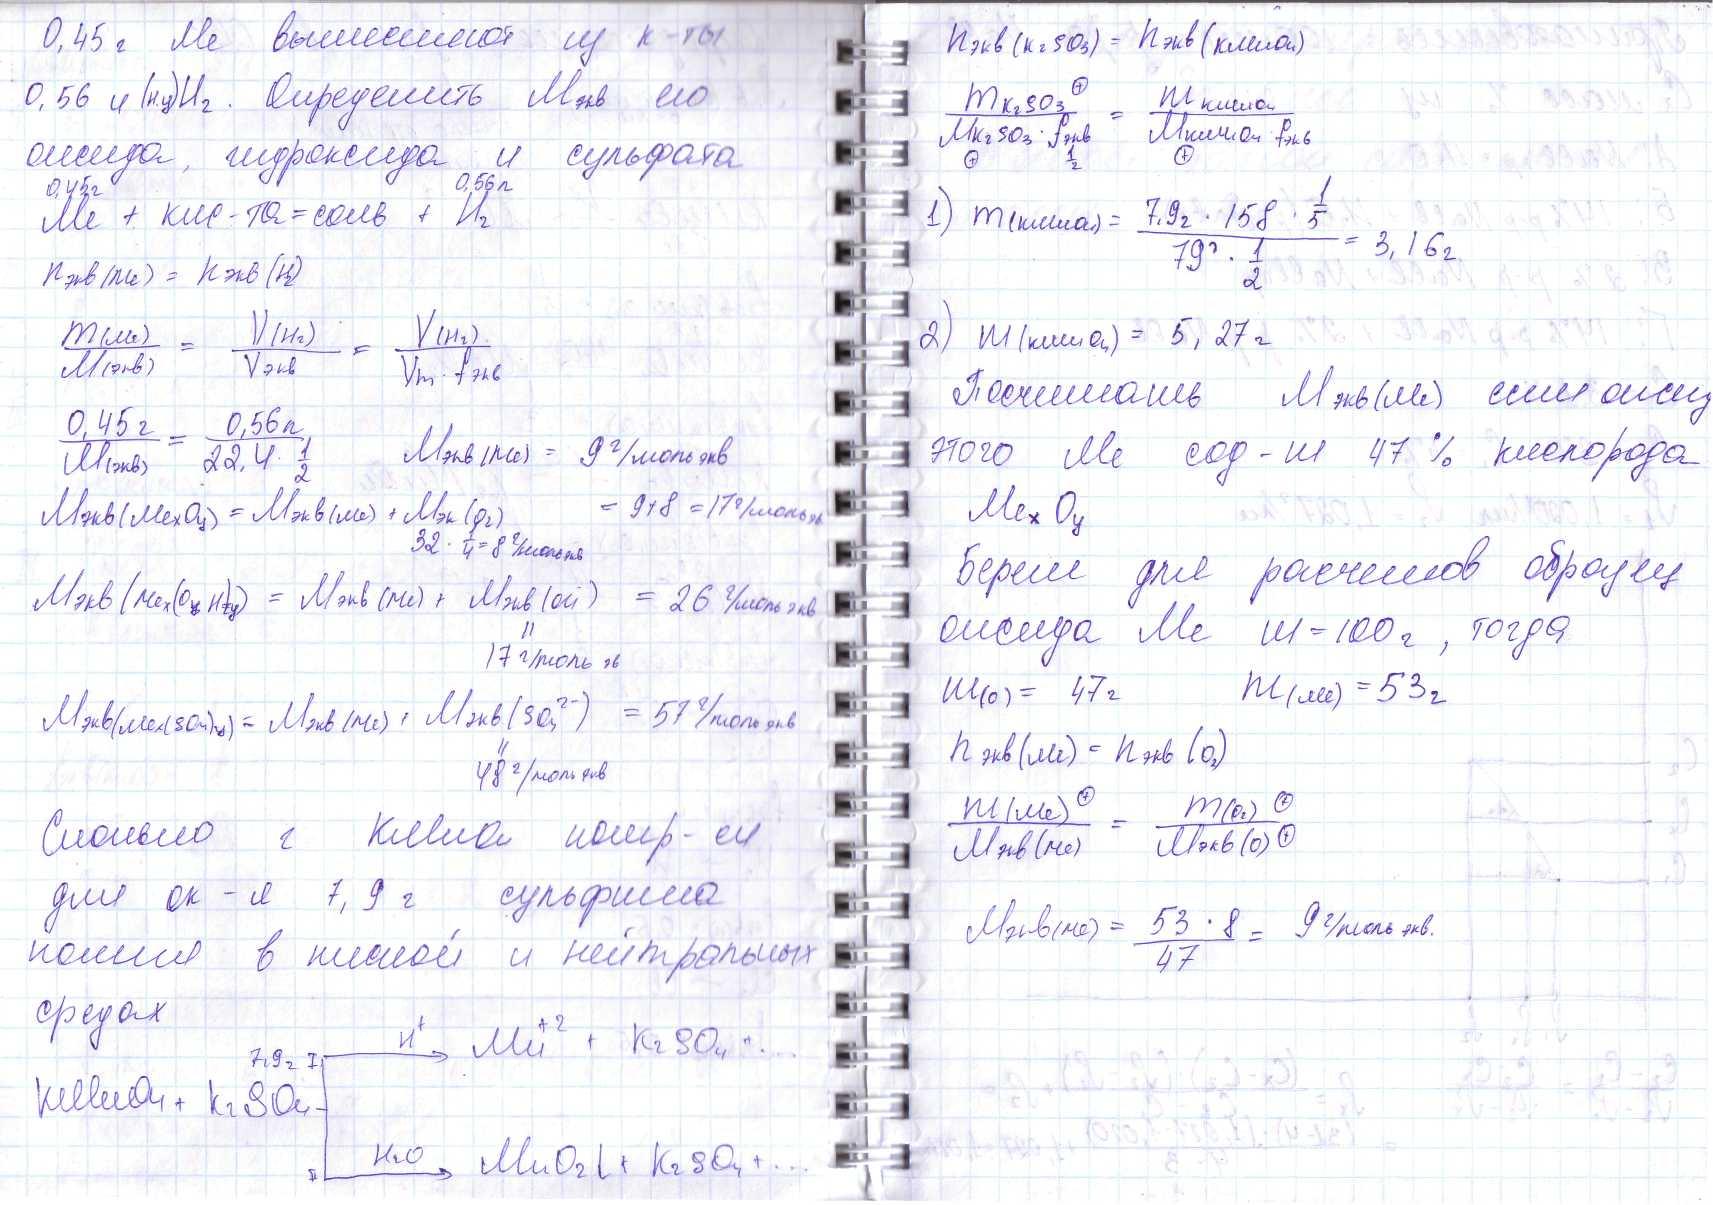 0,45 г Ме вытесняют из к-ты
0,56 л (н.у) H₂. Определить Mэкв его
оксида, гидроксида и сульфата
0,45г 0,56л
Ме + кис-та = соль + H₂
nэкв(ме) = nэкв(H₂)
m(ме)/M(экв) = V(H₂)/Vэкв = V(H₂)/Vm·fэкв
0,45г/M(экв) = 0,56л/22,4·1/2 Mэкв(ме) = 9 г/моль экв
Mэкв(MeₓOy) = Mэкв(ме) + Mэк(O₂) = 9+8 = 17 г/моль эк
32·1/4 = 8 г/моль экв
Mэкв(меₓ(OH)y) = Mэкв(ме) + Mэкв(OH) = 26 г/моль экв
"
17 г/моль эв
Mэкв(Меₓ(SO₄)y) = Mэкв(ме) + Mэкв(SO₄²⁻) = 57 г/моль экв
"
48 г/моль экв
Сколько г KMnO₄ потр-ся
для ок-я 7,9 г сульфита
калия в кислой и нейтральных
средах
7,9г I H⁺ Mn⁺² + K₂SO₄ + ...
KMnO₄ + K₂SO₄
II H₂O MnO₂↓ + K₂SO₄ + ...
nэкв(K₂SO₃) = nэкв(KMnO₄)
mK₂SO₃ ⊕/MK₂SO₃·fэкв = mKMnO₄/MKMnO₄·fэкв
⊕ 1/2 ⊕
1) m(KMnO₄) = 7,9г · 158 · 1/5 / 79 · 1/2 = 3,16г
2) m(KMnO₄) = 5,27г
Посчитать Mэкв(Ме) если оксид
этого Ме сод-ит 47 % кислорода
MeₓOy
Берем для расчетов образец
оксида Ме m = 100г, тогда
m(O) = 47г m(Me) = 53г
nэкв(Ме) = nэкв(O₂)
m(Me)⊕/Mэкв(ме) = m(O₂)⊕/Mэкв(O)⊕
Mэкв(ме) = 53·8/47 = 9 г/моль экв.